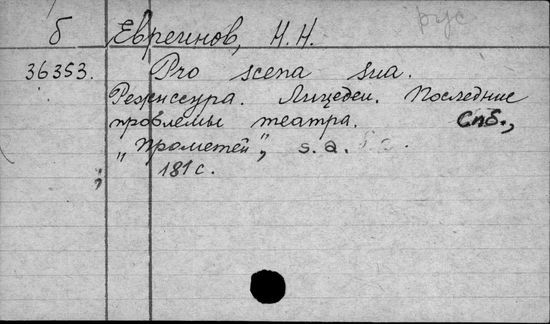 рус
б Евреинов, Н.Н.
36353. Pro scena sua.
Режиссура. Лицедеи. Последние
проблемы театра. Спб.,
„Прометей", s.a.
181 с.